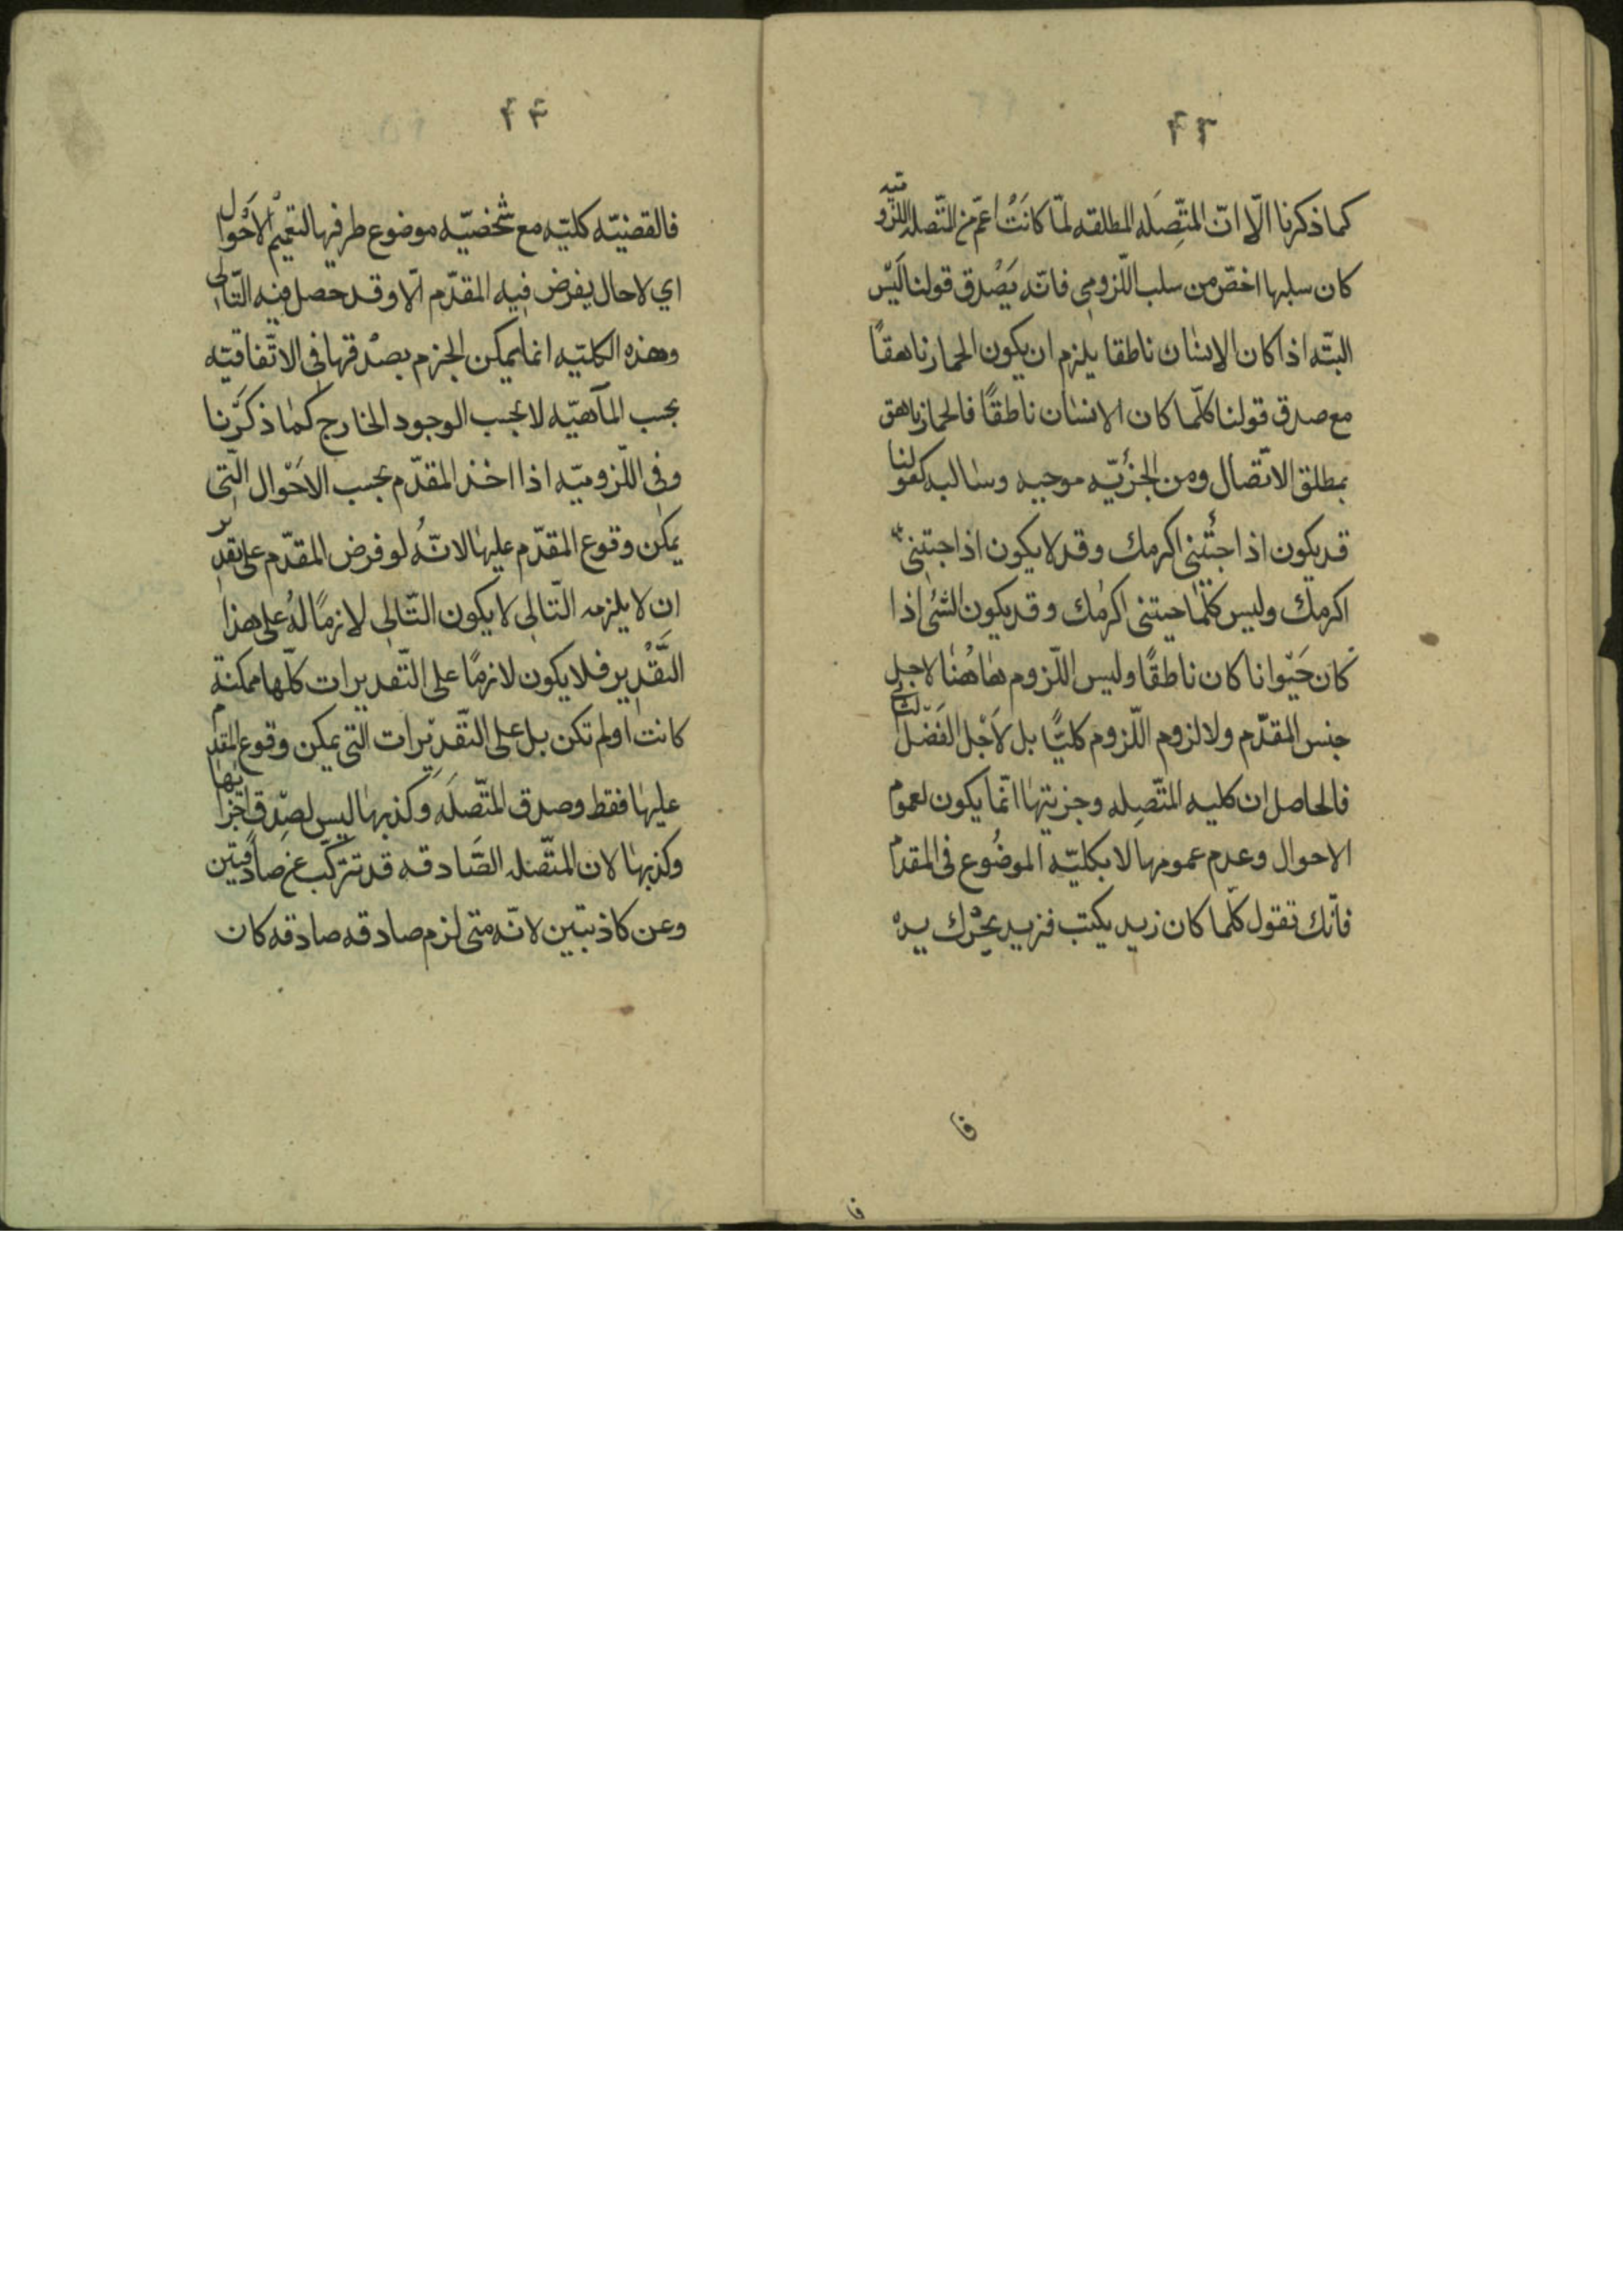 ۴۳
كما ذكرنا الّا انّ المتّصِلَه المطلقه لمّا كانَتْ اعمّ من المتّصله اللزوميّه
كان سلبها اخصّ من سلب اللّزومي فانّه يَصْدق قولنا لَيْس
البتّه اذا كان الانسٰان ناطقا يلزم ان يكون الحمار ناهقًا
مع صدق قولنا كلّما كان الانسٰان ناطقًا فالحمار ناهق
بمطلق الاتّصال ومن الجزئيّه موجبه وسالبه كقولنا
قد يكون اذا جئتني اكرمك وقد لا يكون اذا جئتني
اكرمك وليس كلّما جئتنى اكرمك وقد يكون الشئ اذا
كان حَيْوانا كان ناطقًا وليس اللّزوم هٰاهُنٰا لاجل
جنس المقدّم ولا لزوم اللّزوم كليًّا بل لَاجْل الفَصْل
فالحاصل ان كليه المتّصِله وجزيتهٰا انّمٰا يكون لعموم
الاحوال وعدم عمومها لا بكليّه الموضُوع فى المقدّم
فانّك تقول كلّما كان زيد يكتب فزيد يحرّك يده
فا
فا
۴۴
فالقضيّه كليّه مع شخصيّه موضوع طرفيها لتعميم الاَحْوال
اي لا حال يفرض فيه المقدّم الّا وقد حصل فيه التّالي
وهذه الكليّه انما يمكن الجزم بصْدقها في الاتّفاقيّه
بحسب المآهيّه لا بحسب الوجود الخارج كمٰا ذكَرْنا
وفي اللّزوميّه اذا اخذ المقدّم بحسب الاَحْوال الّتى
يمكن وقوع المقدّم عليهٰا لانّهُ لو فرض المقدّم على تقدير
ان لا يلزمه التّالي لا يكون التّالي لازمًا لهُ على هذا
التَّقْدير فلا يكون لازمًا على التّقديرات كلّها ممكنة
كانت او لم تكن بل على التّقديرات التي يمكن وقوع المقدم
عليهٰا فقط وصدق المتّصلَه وكذبهٰا ليس لصِدق اجزائها
وكذبهٰا لان المتّصله الصّادقه قد تتركّب عن صادقتين
وعن كاذبتين لانّه متى لزم صادقه صادقه كان